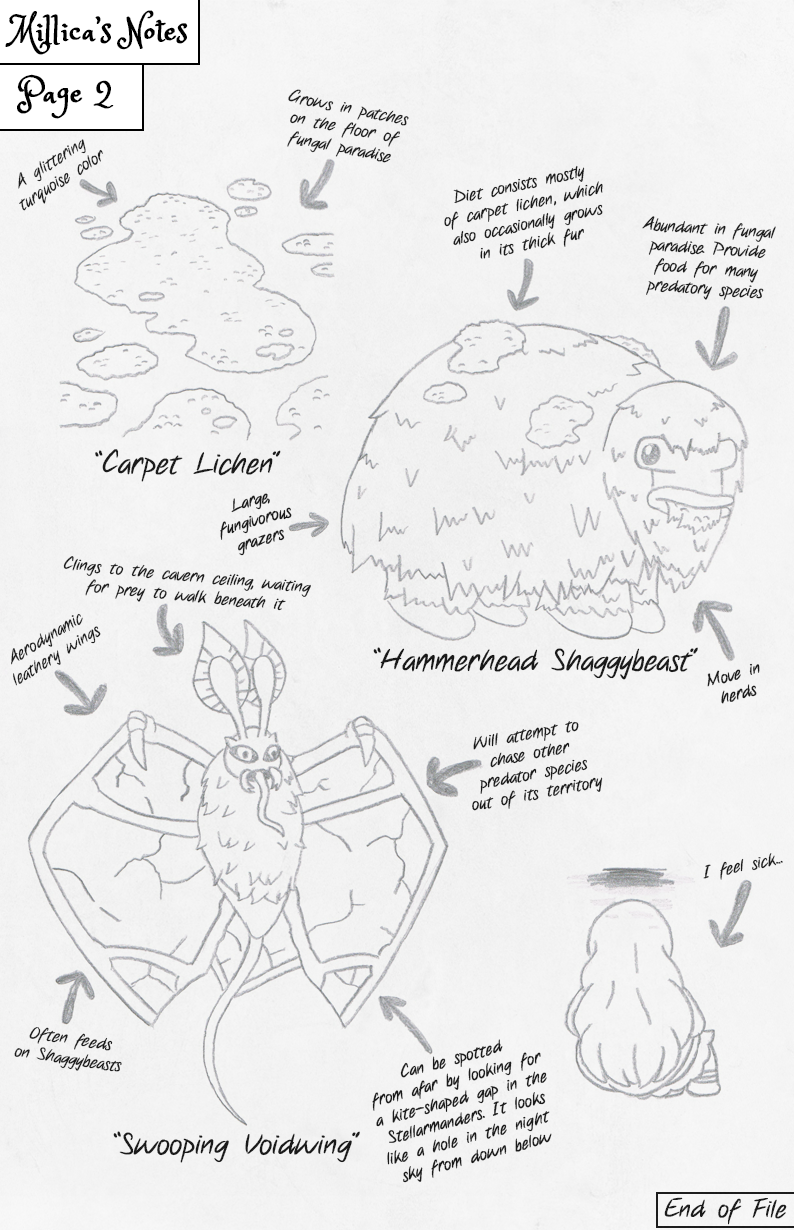 Millica's Notes
Page 2
A glittering
turquoise color
Grows in patches
on the floor of
fungal paradise
"Carpet Lichen"
Diet consists mostly
of carpet lichen, which
also occasionally grows
in its thick fur
Abundant in fungal
paradise. Provide
food for many
predatory species
Large,
fungivorous
grazers
"Hammerhead Shaggybeast"
Move in
herds
Clings to the cavern ceiling, waiting
for prey to walk beneath it
Aerodynamic
leathery wings
Will attempt to
chase other
predator species
out of its territory
Often feeds
on Shaggybeasts
Can be spotted
from afar by looking for
a kite-shaped gap in the
Stellarmanders. It looks
like a hole in the night
sky from down below
"Swooping Voidwing"
I feel sick...
End of File